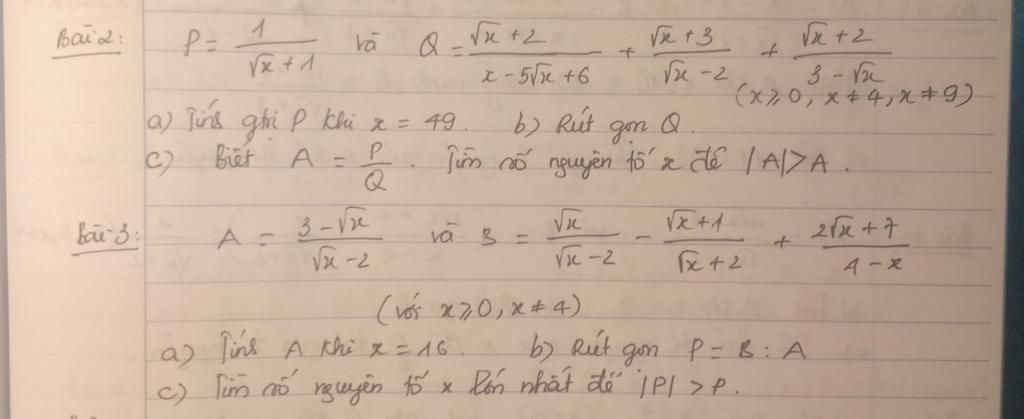 Bài 2: P = 1/(√x + 1) và Q = (√x + 2)/(x - 5√x + 6) + (√x + 3)/(√x - 2) + (√x + 2)/(3 - √x)
(x ≥ 0, x ≠ 4, x ≠ 9)
a) Tính gtri P khi x = 49. b) Rút gọn Q.
c) Biết A = P/Q. Tìm số nguyên tố x để |A| > A.
Bài 3: A = (3 - √x)/(√x - 2) và B = √x/(√x - 2) - (√x + 1)/(√x + 2) + (2√x + 7)/(4 - x)
(với x ≥ 0, x ≠ 4)
a) Tính A khi x = 16. b) Rút gọn P = B : A
c) Tìm số nguyên tố x lớn nhất để |P| > P.